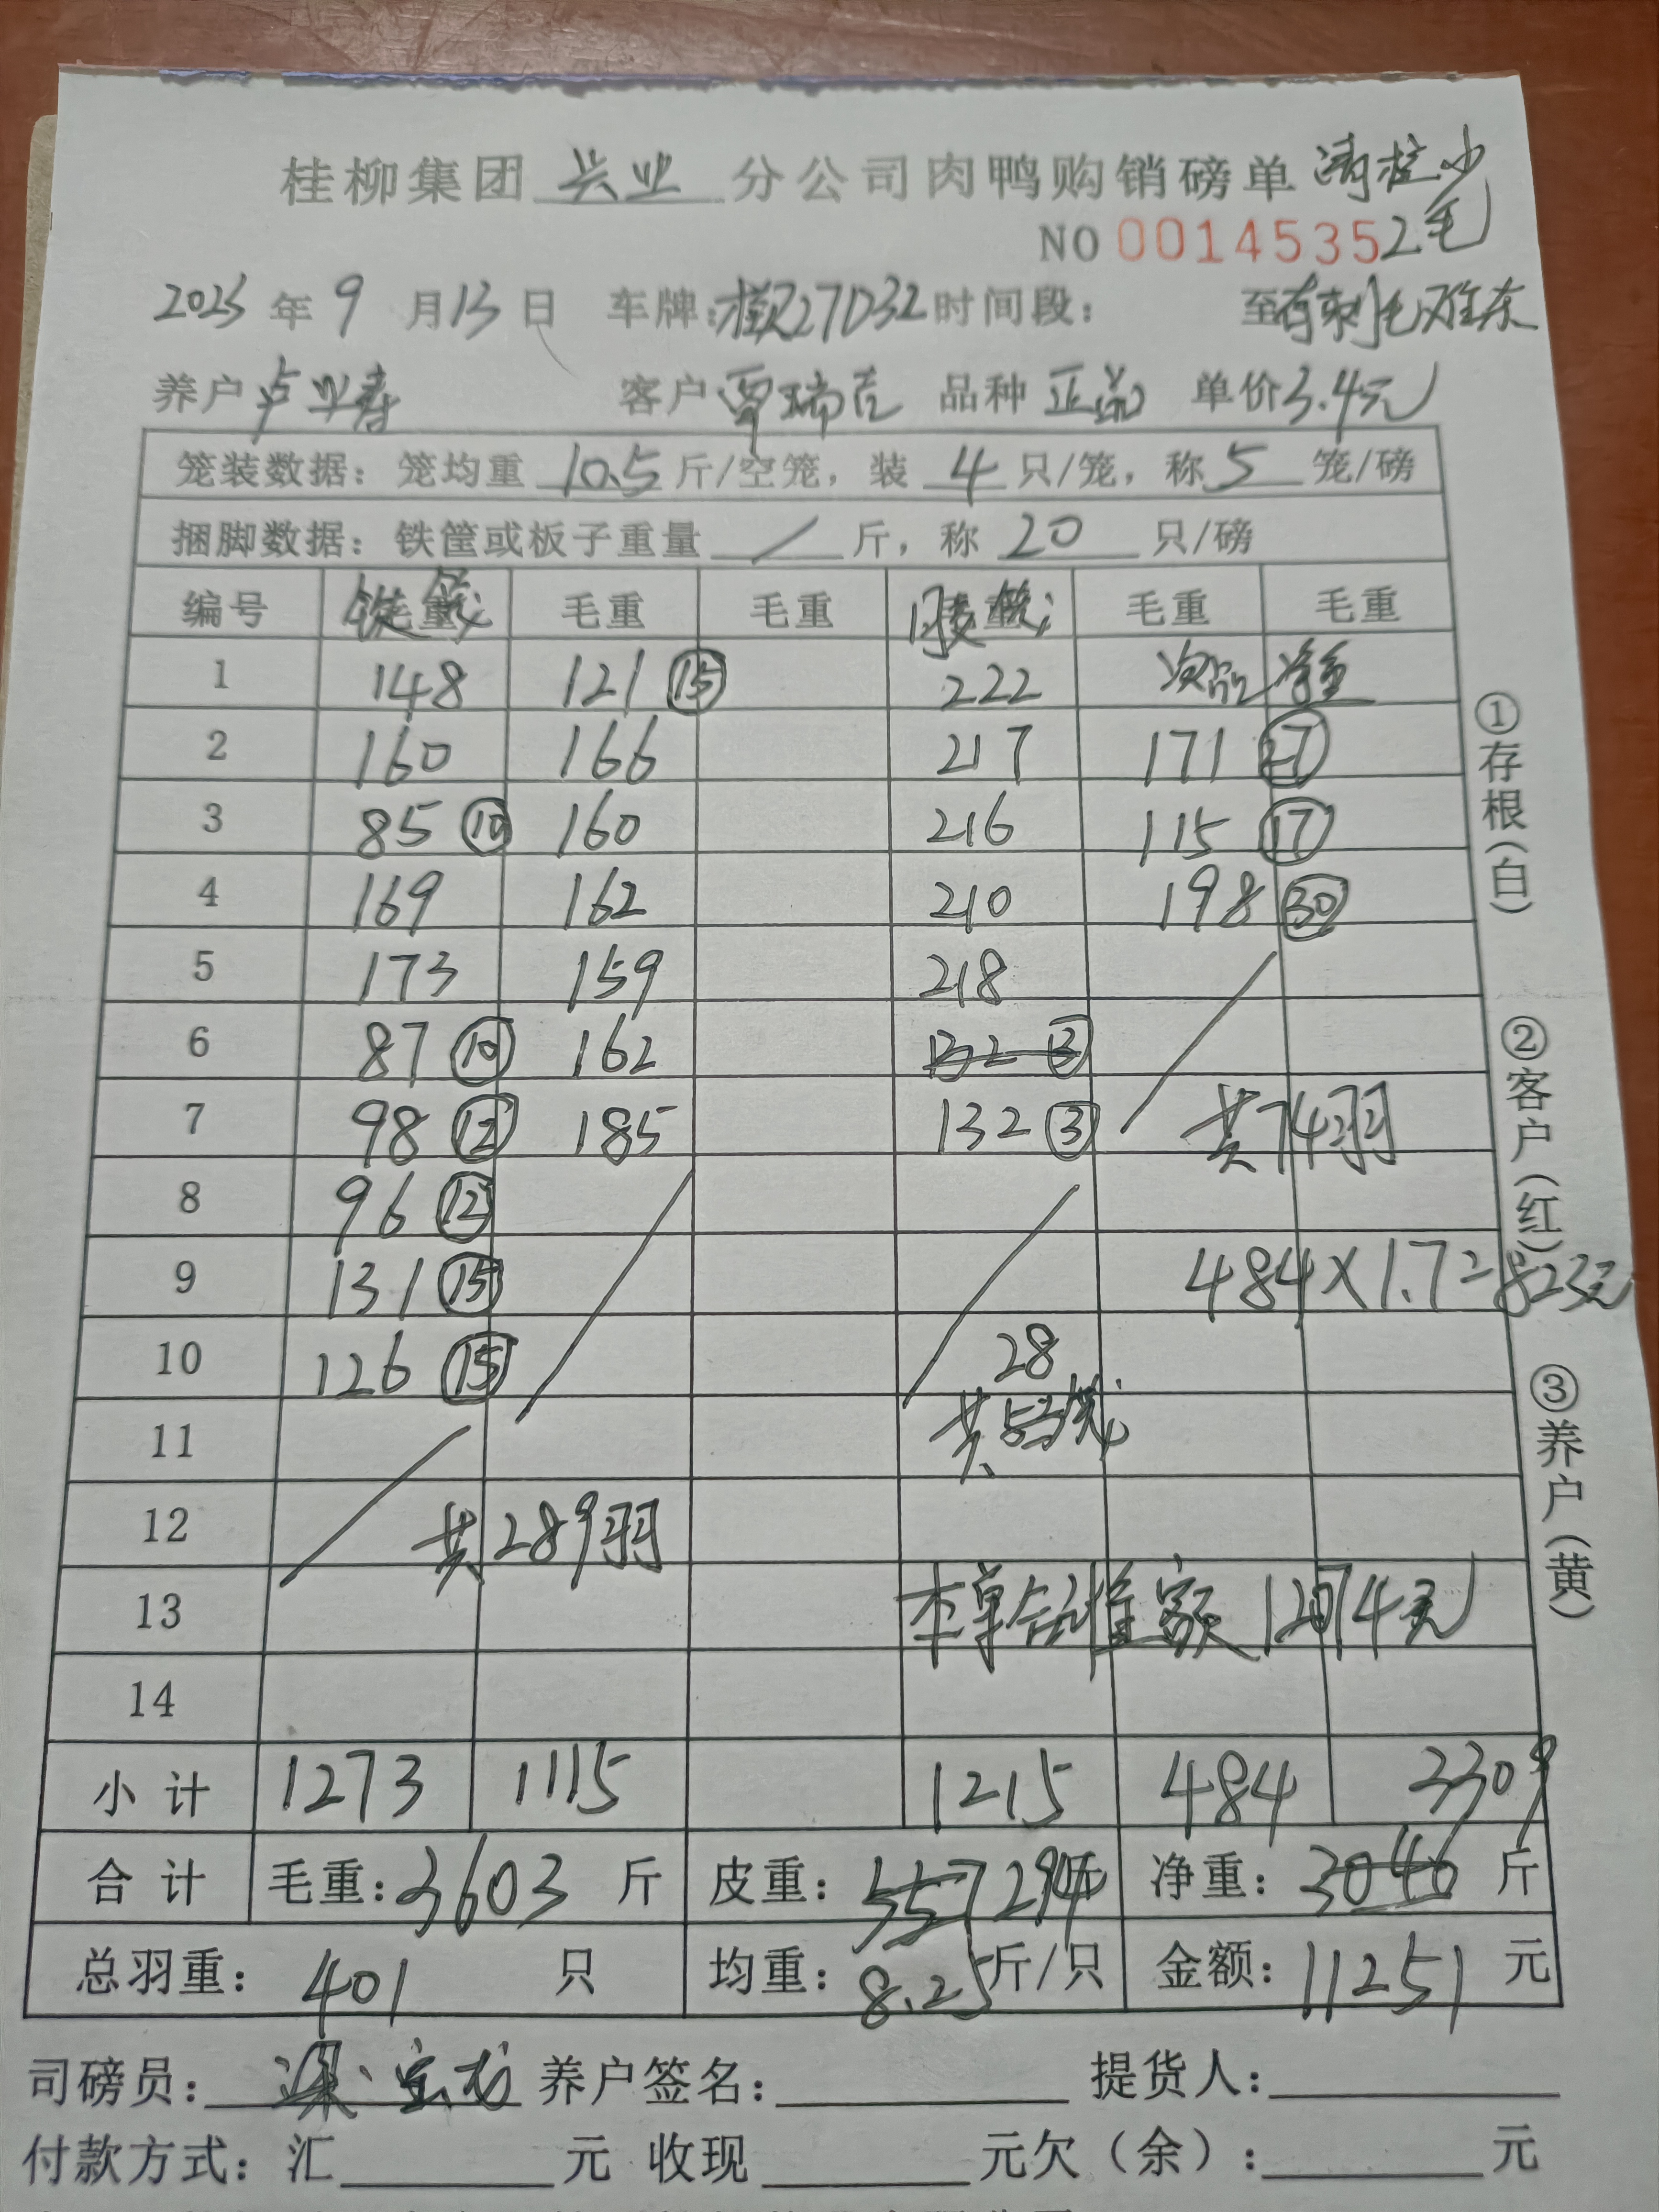 桂柳集团 兴业 分公司肉鸭购销磅单
NO 0014535
2025 年 9 月 13 日 车牌: 27D32 时间段: 至 有刺毛
养户 卢业寿 客户 覃瑞吉 品种 正品 单价 3.4元
笼装数据: 笼均重 10.5 斤/空笼, 装 4 只/笼, 称 5 笼/磅
捆脚数据: 铁筐或板子重量 / 斤, 称 20 只/磅
编号 毛重 毛重 毛重 胶笼 毛重 毛重
1 148 121 ⑮ 222 次品 净重
2 160 166 217 171 ㉗
3 85 ⑩ 160 216 115 ⑰
4 169 162 210 198 ㉚
5 173 159 218
6 87 ⑩ 162 132 ③
7 98 ⑫ 185 132 ③ 共74羽
8 96 ⑫
9 131 ⑮ 484×1.7=823元
10 126 ⑮ 28
11 共53笼
12 共289羽
13 本单合计金额 12074元
14
小计 1273 1115 1215 484 3309
合计 毛重: 3603 斤 皮重: 557 294斤 净重: 3046 斤
总羽重: 401 只 均重: 8.25 斤/只 金额: 11251 元
司磅员: 养户签名: 提货人:
付款方式: 汇 元 收现 元欠(余): 元
①存根(白)
②客户(红)
③养户(黄)